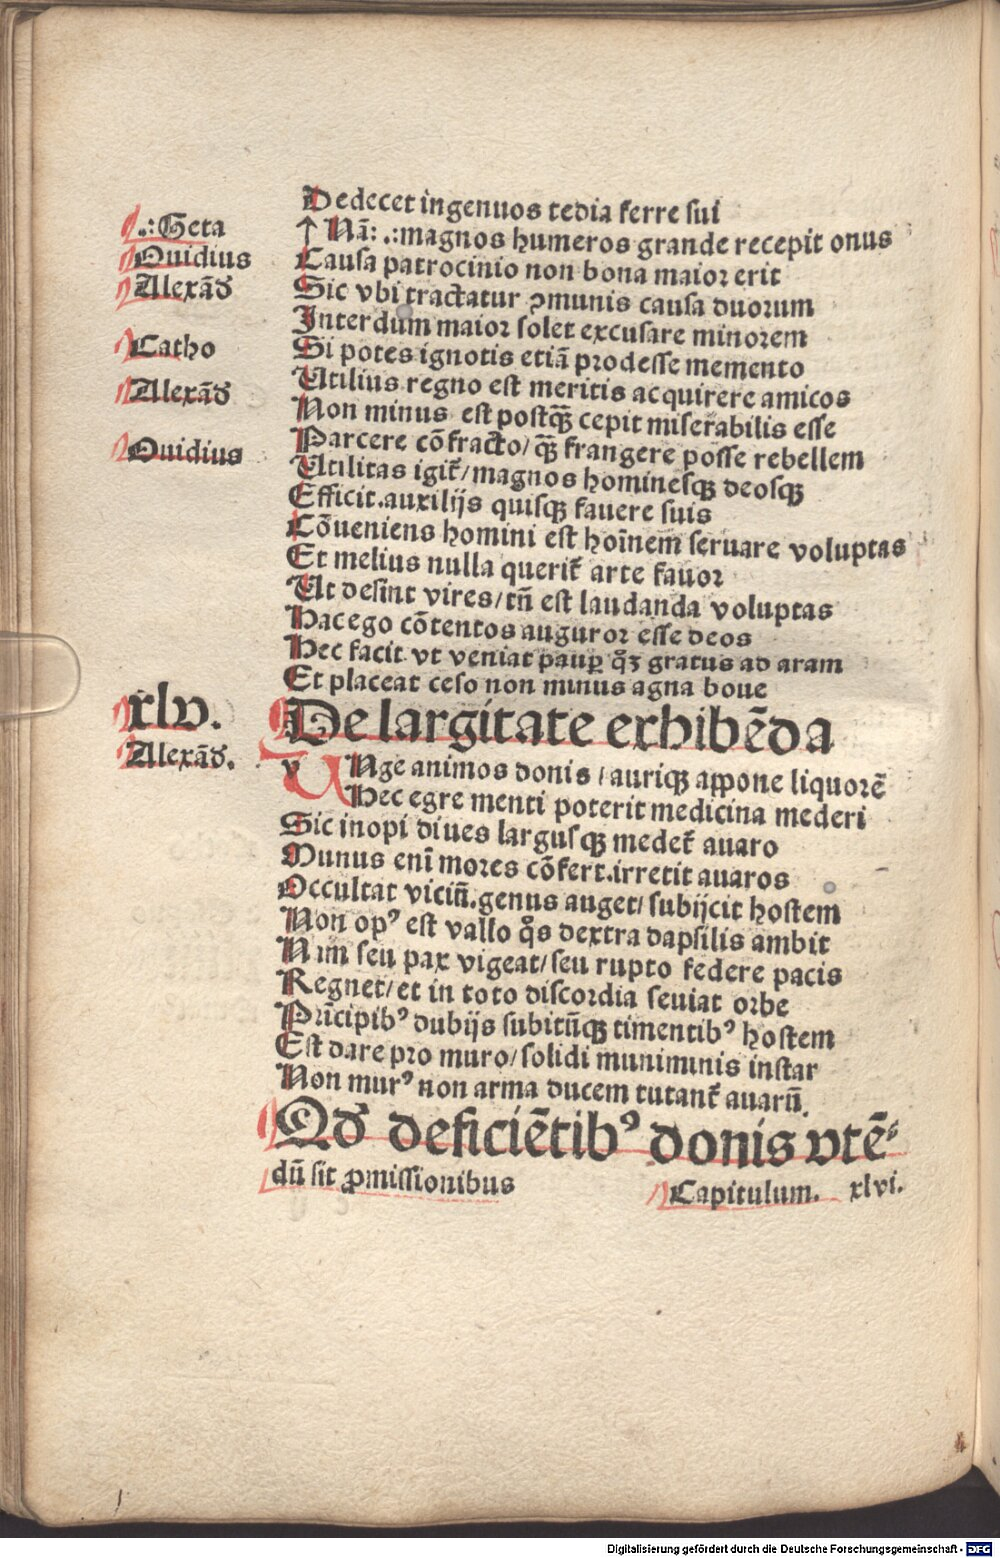 Dedecet ingenuos tedia ferre sui
.:Geta
↑ Nã: .:magnos humeros grande recepit onus
Ouidius
Causa patrocinio non bona maior erit
Alexãd
Sic vbi tractatur ꝯmunis causa duorum
Interdum maior solet excusare minorem
Catho
Si potes ignotis etiã prodesse memento
Alexãd
Utilius regno est meritis acquirere amicos
Non minus est postꝙ̃ cepit miserabilis esse
Ouidius
Parcere cõfracto/ ꝙ̃ frangere posse rebellem
Utilitas igit᷑/ magnos hominesqꝫ deosqꝫ
Efficit.auxilijs quisqꝫ fauere suis
Cõueniens homini est hoĩnem seruare voluptas
Et melius nulla querit᷑ arte fauor
Ut desint vires/ tñ est laudanda voluptas
Hac ego cõtentos auguror esse deos
Hec facit vt veniat paup̲ qͦꝫ gratus ad aram
Et placeat ceso non minus agna boue
xlv.
De largitate exhibẽda
Alexãd.
v UNge animos donis / auriqꝫ appone liquorẽ
Hec egre menti poterit medicina mederi
Sic inopi diues largusqꝫ medet᷑ auaro
Munus enĩ mores cõfert.irretit auaros
Occultat viciũ.genus auget/ subijcit hostem
Non opꝰ est vallo qͦs dextra dapsilis ambit
Nam seu pax vigeat/ seu rupto federe pacis
Regnet/ et in toto discordia seuiat orbe
Prĩcipibꝰ dubijs subitũqꝫ timentibꝰ hostem
Est dare pro muro/ solidi muniminis instar
Non murꝰ non arma ducem tutant᷑ auarũ.
Qd deficiẽtibꝰ donis vtẽ⸗
dũ sit ꝓmissionibus Capitulum. xlvi.
Digitalisierung gefördert durch die Deutsche Forschungsgemeinschaft - DFG